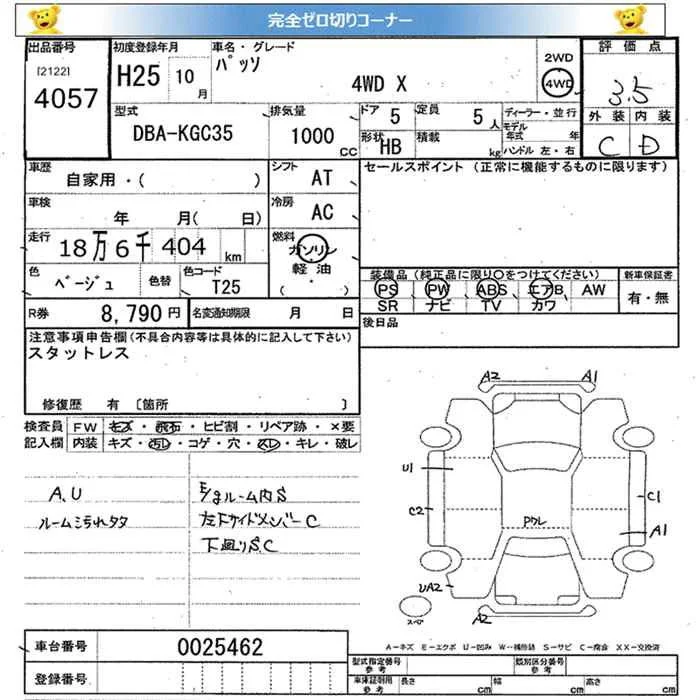 完全ゼロ切りコーナー
出品番号 初度登録年月 車名・グレード 2WD 評価点
[2122] 4057 H25 10月 パッソ 4WD X 4WD 3.5
型式 排気量 ドア 5 定員 5人 ディーラー・並行 外装 内装
DBA-KGC35 1000 CC 形状 HB 積載 kg モデル年式 年 ハンドル 左・右 C D
車歴 シフト セールスポイント(正常に機能するものに限ります)
自家用・( ) AT
車検 冷房
年 月( 日) AC
走行 18万6千404km 燃料 ガソリン 軽油 (・)
色 色替 色コード 装備品(純正品に限り○をつけてください) 新車保証書
ベージュ T25 PS PW ABS エアB AW 有・無
SR ナビ TV カワ
R券 8,790円 名変通知期限 月 日 後日品
注意事項申告欄(不具合内容等は具体的に記入して下さい)
スタットレス
修復歴 有 〔箇所 〕
検査員 FW キズ・飛石・ヒビ割・リペア跡・×要
記入欄 内装 キズ・汚れ・コゲ・穴・スレ・キレ・破レ
A.U
ルーム汚れタタ
E/gルーム内S
左下サイドメンバーC
下廻りS.C
A2 A1
U1
C2 C1
A1
Pクレ
UA2
スペア
A2
A-キズ E-エクボ U-凹み W-補修跡 S-サビ C-腐食 XX-交換済
車台番号 0025462
登録番号
型式指定番号 参考 類別区分番号 参考
車庫証明用 参考 長さ cm 幅 cm 高さ cm